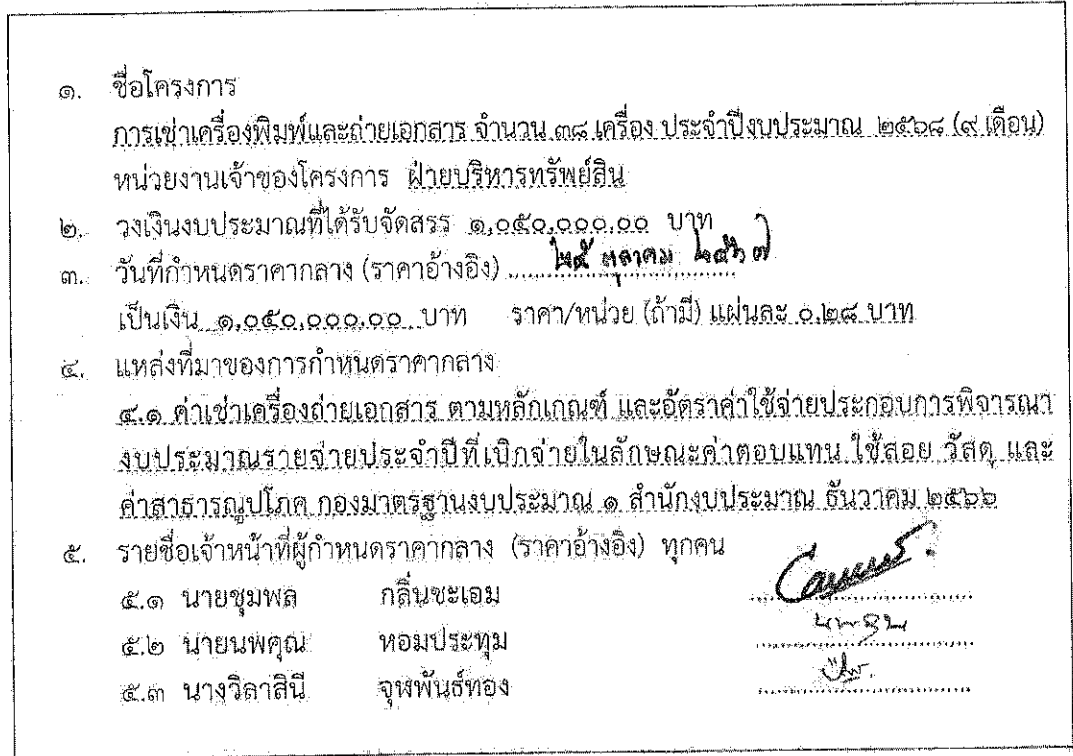 ๑. ชื่อโครงการ
การเช่าเครื่องพิมพ์และถ่ายเอกสาร จำนวน ๓๘ เครื่อง ประจำปีงบประมาณ ๒๕๖๘ (๙ เดือน)
หน่วยงานเจ้าของโครงการ ฝ่ายบริหารทรัพย์สิน
๒. วงเงินงบประมาณที่ได้รับจัดสรร ๑,๐๕๐,๐๐๐.๐๐ บาท
๓. วันที่กำหนดราคากลาง (ราคาอ้างอิง) ๒๕ ตุลาคม ๒๕๖๗
เป็นเงิน ๑,๐๕๐,๐๐๐.๐๐ บาท ราคา/หน่วย (ถ้ามี) แผ่นละ ๐.๒๘ บาท
๔. แหล่งที่มาของการกำหนดราคากลาง
๔.๑ ค่าเช่าเครื่องถ่ายเอกสาร ตามหลักเกณฑ์ และอัตราค่าใช้จ่ายประกอบการพิจารณา
งบประมาณรายจ่ายประจำปีที่เบิกจ่ายในลักษณะค่าตอบแทน ใช้สอย วัสดุ และ
ค่าสาธารณูปโภค กองมาตรฐานงบประมาณ ๑ สำนักงบประมาณ ธันวาคม ๒๕๖๖
๕. รายชื่อเจ้าหน้าที่ผู้กำหนดราคากลาง (ราคาอ้างอิง) ทุกคน
๕.๑ นายชุมพล กลิ่นชะเอม
๕.๒ นายนพคุณ หอมประทุม
๕.๓ นางวิลาสินี จุฬพันธ์ทอง